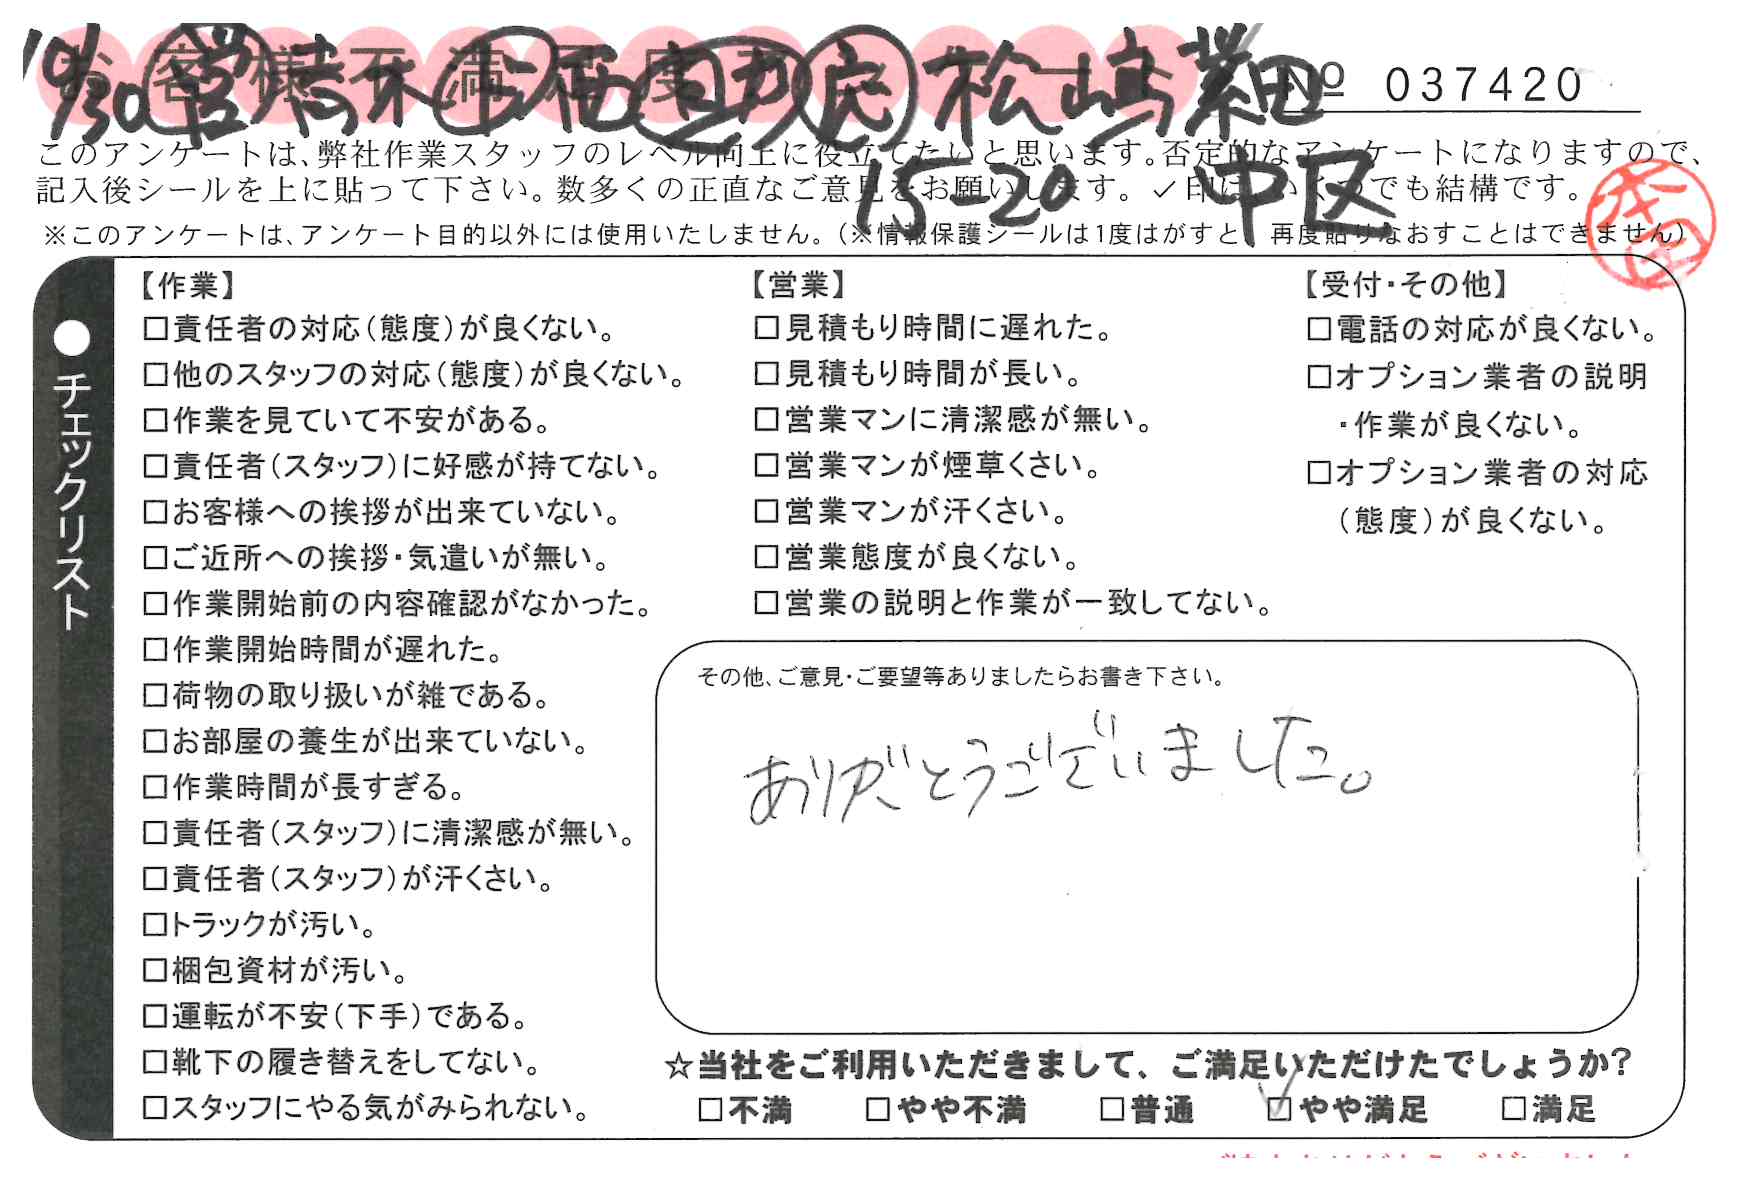 お客様不満足度アンケート
10/30 営 青木 仁 西 宮 力 応 松山嶋 業田
№ 037420
このアンケートは、弊社作業スタッフのレベル向上に役立てたいと思います。否定的なアンケートになりますので、
記入後シールを上に貼って下さい。数多くの正直なご意見をお願いします。✓印はいくつでも結構です。
15-20 中区
※このアンケートは、アンケート目的以外には使用いたしません。（※情報保護シールは1度はがすと、再度貼りなおすことはできません）
●チェックリスト
【作業】
□責任者の対応（態度）が良くない。
□他のスタッフの対応（態度）が良くない。
□作業を見ていて不安がある。
□責任者（スタッフ）に好感が持てない。
□お客様への挨拶が出来ていない。
□ご近所への挨拶・気遣いが無い。
□作業開始前の内容確認がなかった。
□作業開始時間が遅れた。
□荷物の取り扱いが雑である。
□お部屋の養生が出来ていない。
□作業時間が長すぎる。
□責任者（スタッフ）に清潔感が無い。
□責任者（スタッフ）が汗くさい。
□トラックが汚い。
□梱包資材が汚い。
□運転が不安（下手）である。
□靴下の履き替えをしてない。
□スタッフにやる気がみられない。
【営業】
□見積もり時間に遅れた。
□見積もり時間が長い。
□営業マンに清潔感が無い。
□営業マンが煙草くさい。
□営業マンが汗くさい。
□営業態度が良くない。
□営業の説明と作業が一致してない。
【受付・その他】
□電話の対応が良くない。
□オプション業者の説明
・作業が良くない。
□オプション業者の対応
（態度）が良くない。
その他、ご意見・ご要望等ありましたらお書き下さい。
ありがとうございました。
☆当社をご利用いただきまして、ご満足いただけたでしょうか？
□不満 □やや不満 □普通 ☑やや満足 □満足